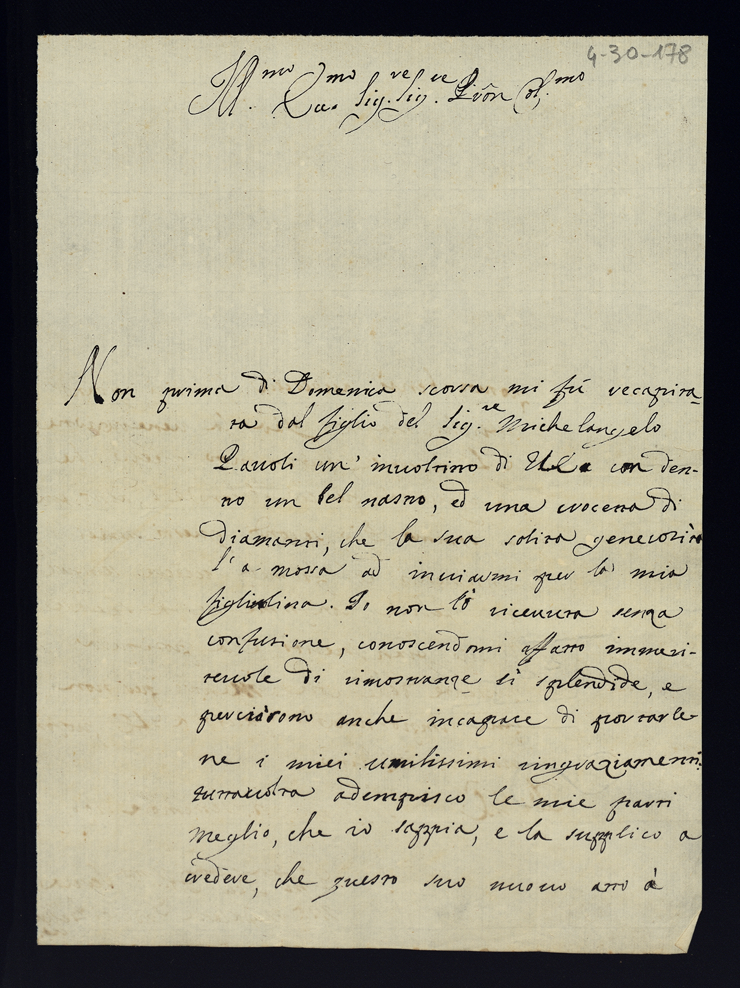 4-30-178
Ill.mo Ecc.mo Sig.re Sig.re P.rôn Col.mo
Non prima di Domenica scorsa mi fù recapita-
ta dal figlio del Sig.re Michelangelo
Pauoli un' inuoltino di con den-
tro un bel nastro, ed una crocetta di
diamanti, che la sua solita generosità
l'a mossa ad inuiarmi per la mia
figliolina. Io non l'ò riceuuta senza
confusione, conoscendomi affatto immeri-
teuole di rimostranze sì splendide, e
perciò sono anche incapace di portarle-
ne i miei umilissimi ringraziamenti:
tuttauolta adempisco le mie parti
meglio, che io sappia, e la supplico a
credere, che questo suo nuouo atto è